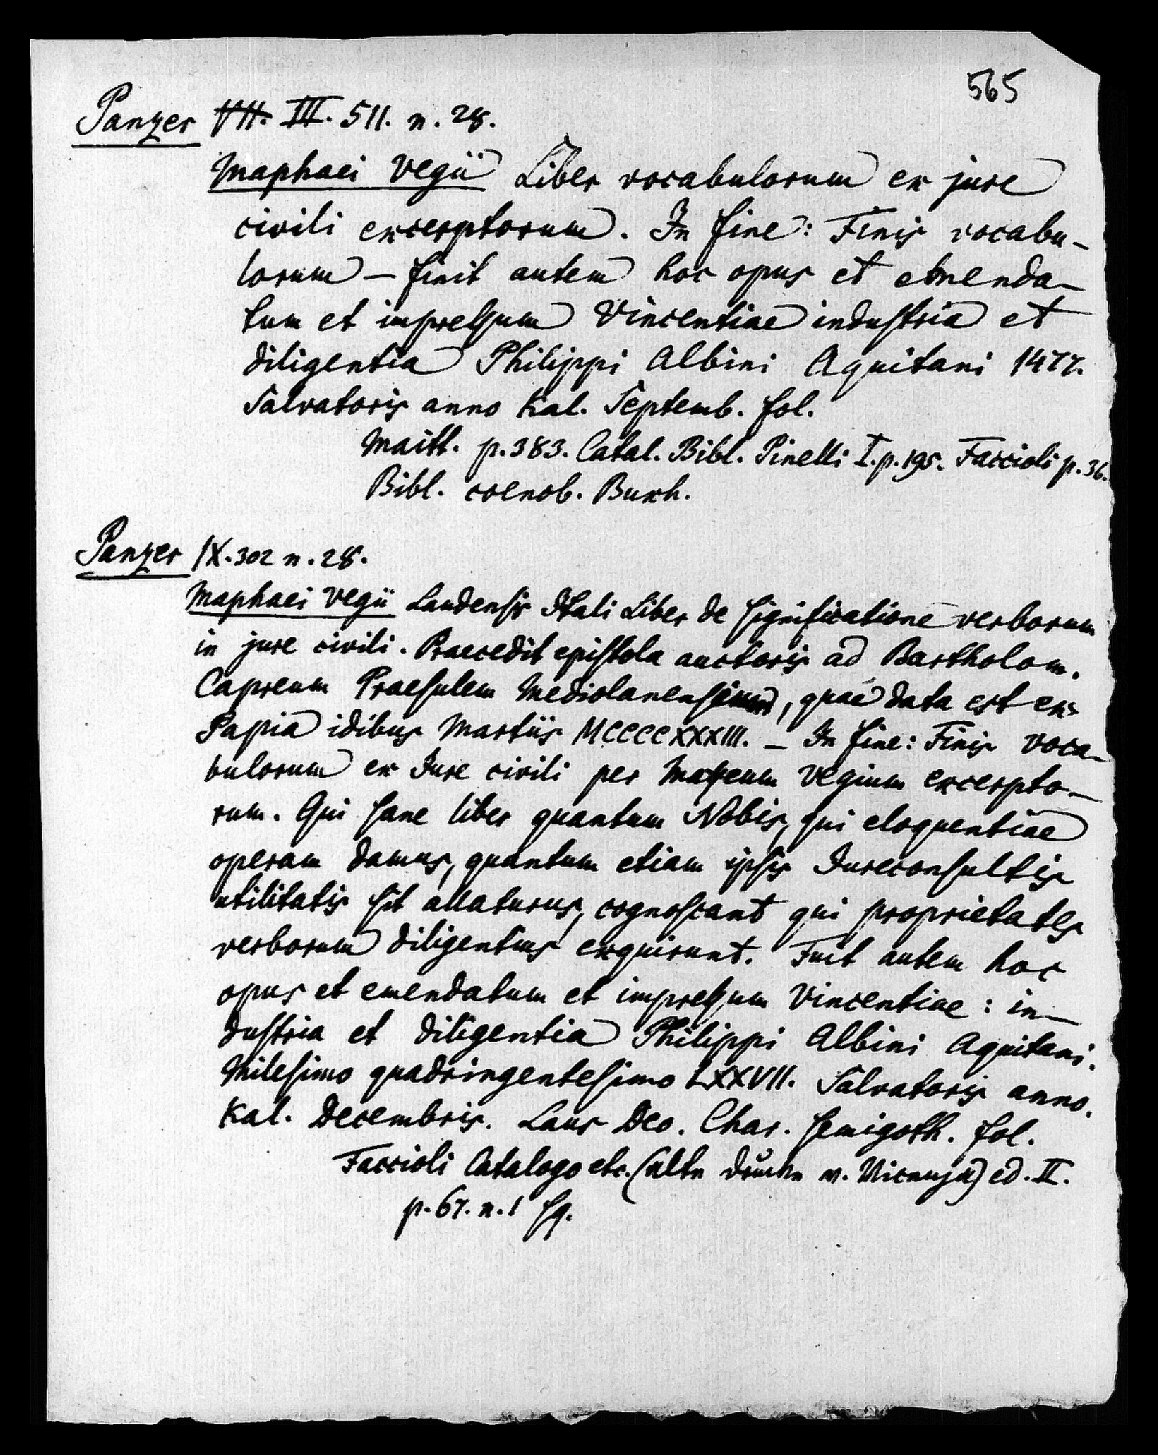 565
Panzer VII. III. 511. n. 28.
Maphaei Vegii Liber vocabulorum ex jure
civili excerptorum. In fine: Finis vocabu-
lorum – finit autem hoc opus et emenda-
tum et impressum Vincentiae industria et
diligentia Philippi Albini Aquitani 1477.
Salvatoris anno Kal. Septemb. fol.
Maitt. p. 383. Catal. Bibl. Pinelli I. p. 195. Faccioli p. 36.
Bibl. coenob. Buxh.
Panzer IX. 302 n. 28.
Maphaei Vegii Laudensis Itali Liber de significatione verborum
in jure civili. Praecedit epistola auctoris ad Bartholom.
Capreum Praesulem Mediolanensium, quae data est ex
Papia idibus Martiis MCCCCXXXIII. – In fine: Finis voca-
bulorum ex Jure civili per Mapheum Vegium excerpto-
rum. Qui sane liber quantum Nobis, qui eloquentiae
operam damus, quantum etiam ipsis Jureconsultis
utilitatis sit allaturus, cognoscant qui proprietates
verborum diligentius exquirunt. Fuit autem hoc
opus et emendatum et impressum Vincentiae: in-
dustria et diligentia Philippi Albini Aquitani.
Milesimo quadringentesimo LXXVII. Salvatoris anno.
Kal. Decembris. Laus Deo. Char. semigoth. fol.
Faccioli Catalogo etc. (alte Drucke v. Vicenza) ed. II.
p. 67. n. 1 sq.